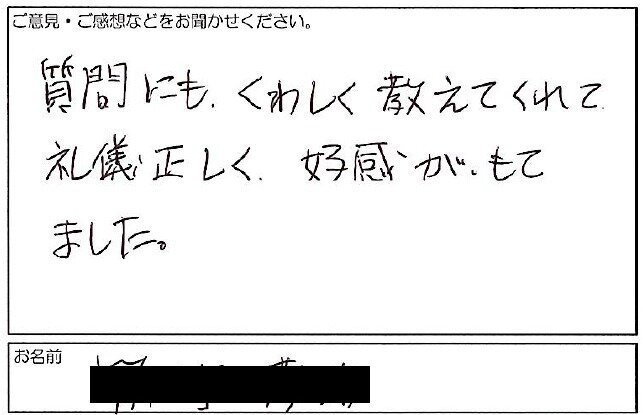 ご意見・ご感想などをお聞かせください。
質問にも、くわしく教えてくれて
礼儀正しく、好感がもて
ました。
お名前